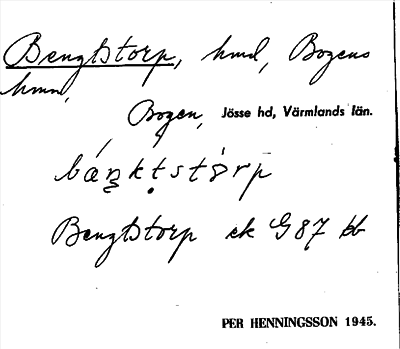 Bengtstorp, hmd, Bogens
hmn,
Bogen, Jösse hd, Värmlands län.
Bengtstorp ek G 87 bb
PER HENNINGSSON 1945.